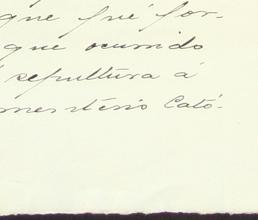 que fué for-
que ocurrido
sepultura á
menterio Cató-